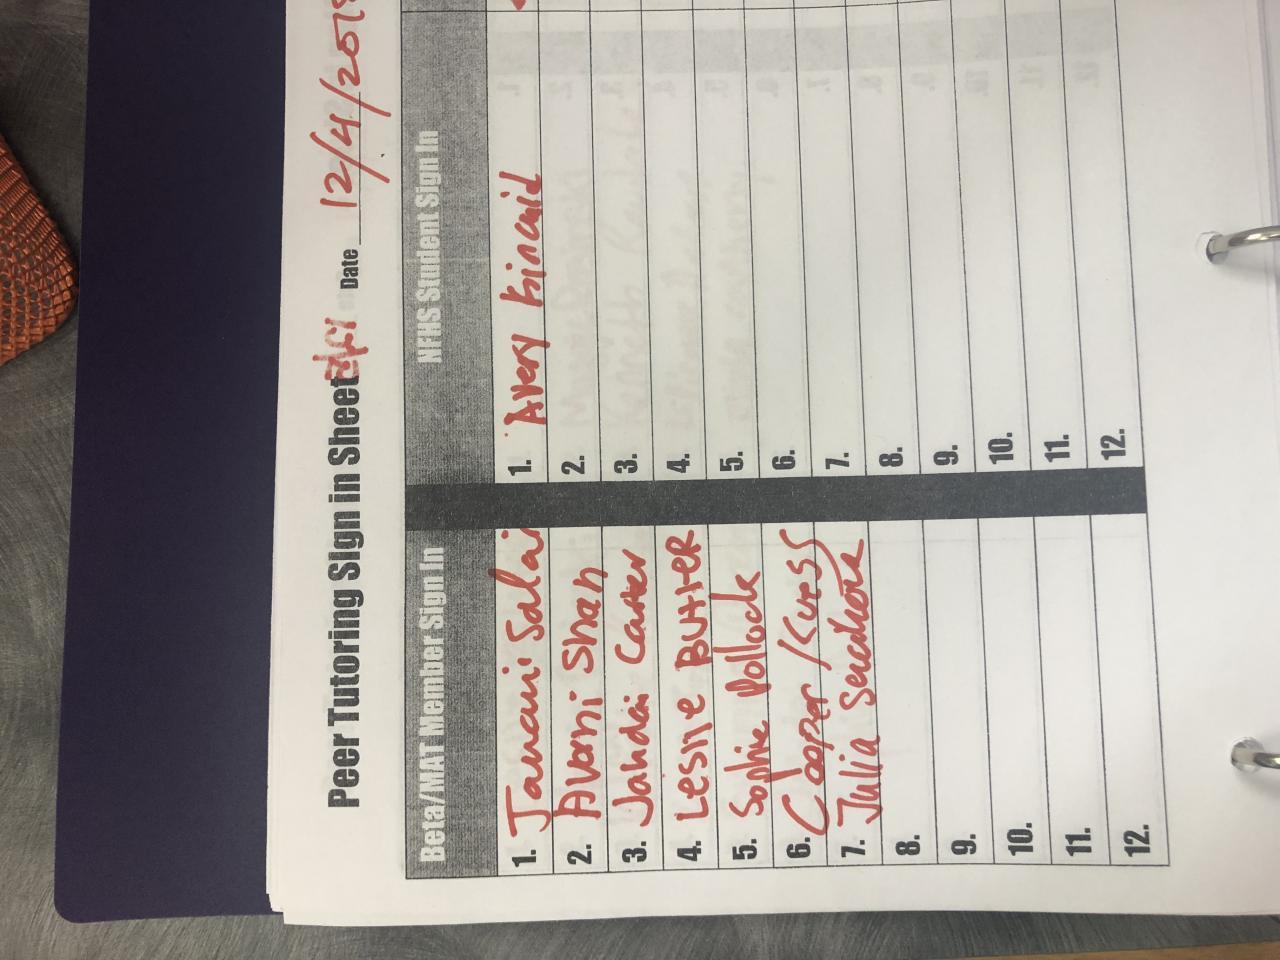 Peer Tutoring Sign in Sheet Date 12/4/201
Beta/MAT Member Sign In NFHS Student Sign In
1. Janani Salai 1. Avery Kincaid
2. Avani Shah 2.
3. Jahdai Carter 3.
4. Leslie Butler 4.
5. Sophie Pollock 5.
6. Cooper Kurss 6.
7. Julia 7.
8. 8.
9. 9.
10. 10.
11. 11.
12. 12.